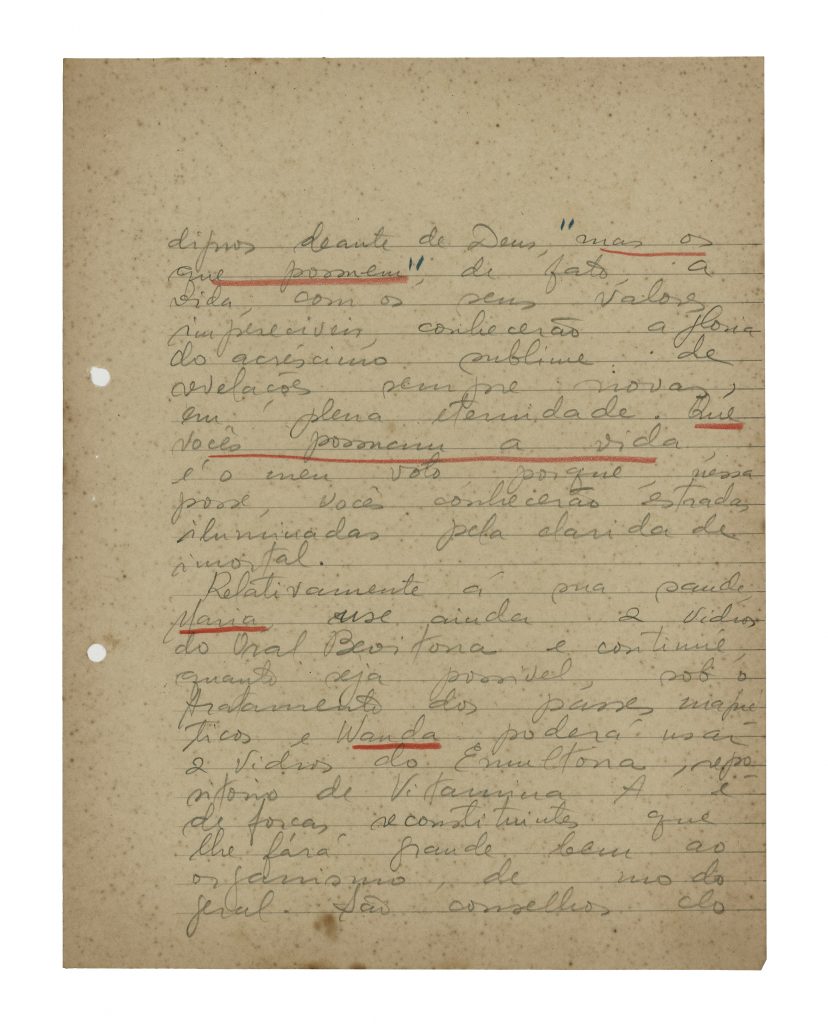 dignos deante de Deus, "mas os
que possuem", de fato, a
vida, com os seus valores
imperecíveis, conhecerão a gloria
do acréscimo sublime de
revelações sempre novas,
em plena eternidade. Que
vocês possuam a vida
é o meu voto porque, nessa
posse, vocês conhecerão estradas
iluminadas pela claridade
imortal.
Relativamente á sua saude,
Maria, use ainda 2 vidros
do Oral Bevitona e continue,
quanto seja possivel, sob o
tratamento dos passes magné
ticos e Wanda poderá usar
2 vidros do Emultona, repo
sitorio de Vitamina A e
de forças reconstituintes que
lhe fará grande bem ao
organismo, de modo
geral. São conselhos do